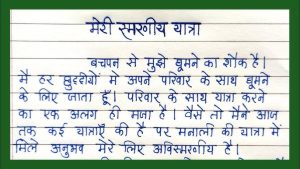 मेरी स्मरणीय यात्रा
बचपन से मुझे घूमने का शौक है।
मै हर छुट्टीयों में अपने परिवार के साथ घूमने
के लिए जाता हूँ। परिवार के साथ यात्रा करने
का एक अलग ही मजा है। वैसे तो मैने आज
तक कई यात्राएँ की है पर मनाली की यात्रा में
मिले अनुभव मेरे लिए अविस्मरणीय है।